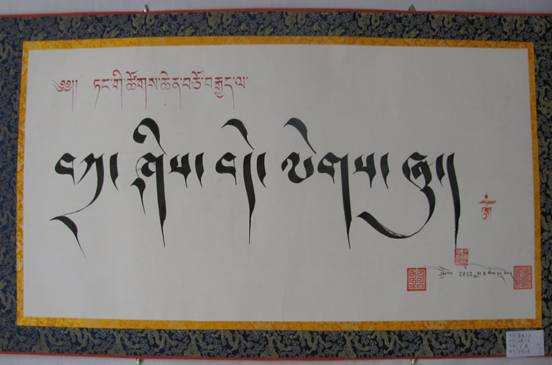 ༄༅།། ཏང་གི་ཚོགས་ཆེན་བཅོ་བརྒྱད་ལ་
བཀྲ་ཤིས་བདེ་ལེགས་ཞུ།
2012